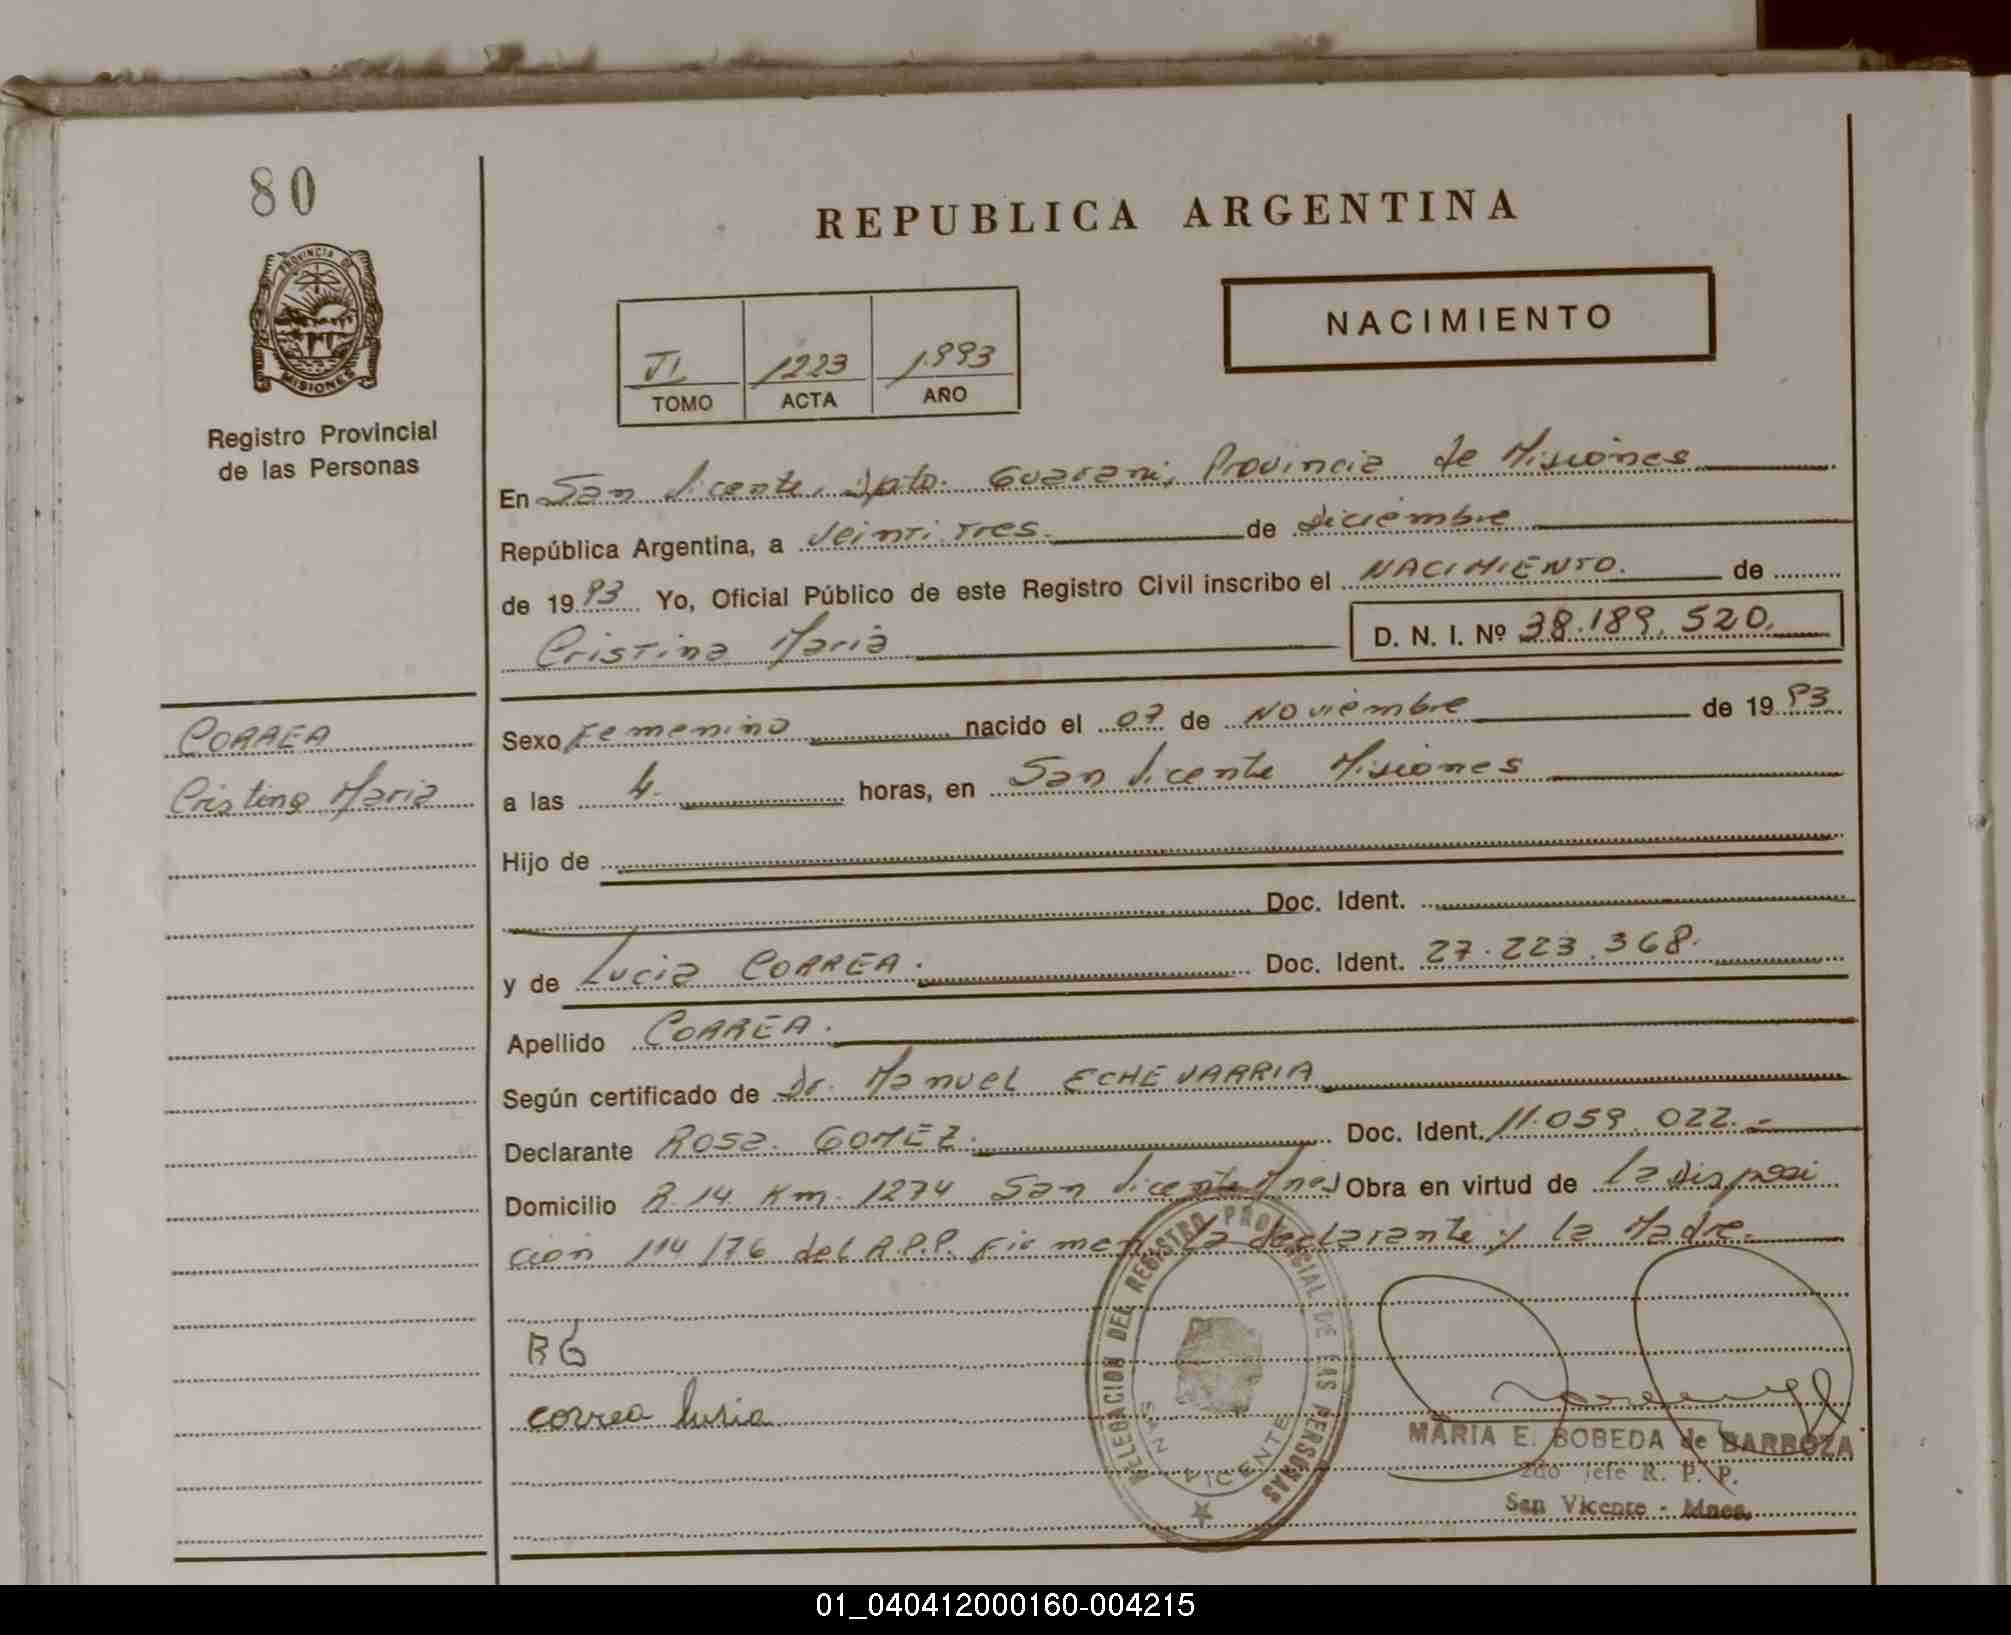 80
REPUBLICA ARGENTINA
PROVINCIA DE
MISIONES
Registro Provincial
de las Personas
NACIMIENTO
VI 1223 1.993
TOMO ACTA AÑO
En San Vicente, Dpto. Guarani, Provincia de Misiones
República Argentina, a Veintitres de diciembre
de 1993 Yo, Oficial Público de este Registro Civil inscribo el NACIMIENTO. de
Cristina Maria D. N. I. Nº 38.189.520.
CORREA
Cristina Maria
Sexo Femenino nacido el 07 de Noviembre de 1993
a las 4. horas, en San Vicente Misiones
Hijo de
Doc. Ident.
y de Lucia CORREA. Doc. Ident. 27.223.368.
Apellido CORREA.
Según certificado de Dr. Manuel ECHEVARRIA
Declarante Rosa. GOMEZ. Doc. Ident. 11.059.022.-
Domicilio R.14 Km. 1274 San Vicente Mnes Obra en virtud de la disposi
ción 114/76 del R.P.P. Firman la declarante y la Madre.
RG
correa lusia
DELEGACION DEL REGISTRO PROVINCIAL DE LAS PERSONAS
SAN VICENTE
MARIA E. BOBEDA de BARBOZA
2do Jefe R. P. P.
San Vicente - Mnes.
01_040412000160-004215